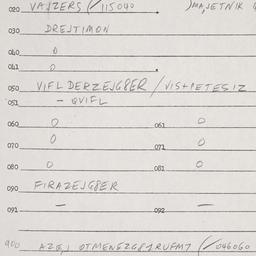 020 VAJZERS (/115040 )MAJETNIK
030 DREJTIMON
040 0
041 0
050 VIFL DERZEJG8ER / VIS+PETESIZ
051 - QVIFL
060 0 061 0
070 0 071 0
080 0 081 0
090 FIRAZEJG8ER
091 - 092 -
900 AZEJ OTMENEZG81RUFM7 (/046060